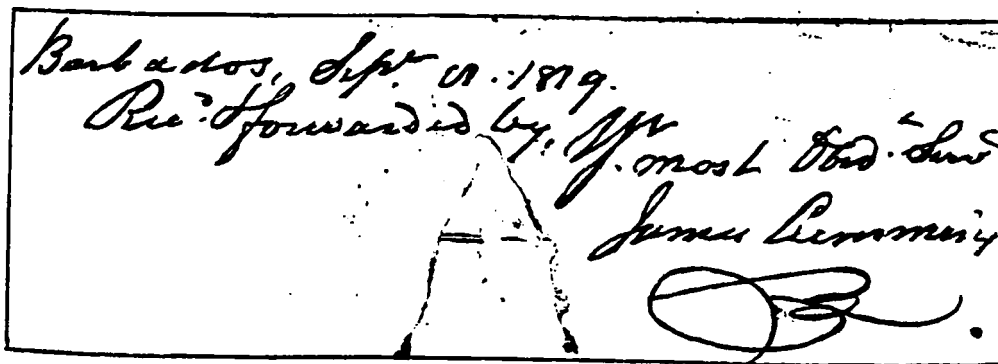 Barbados, Sepr 1819.
Recd & forwarded by, Yr most Obdt Servt
James Cumming